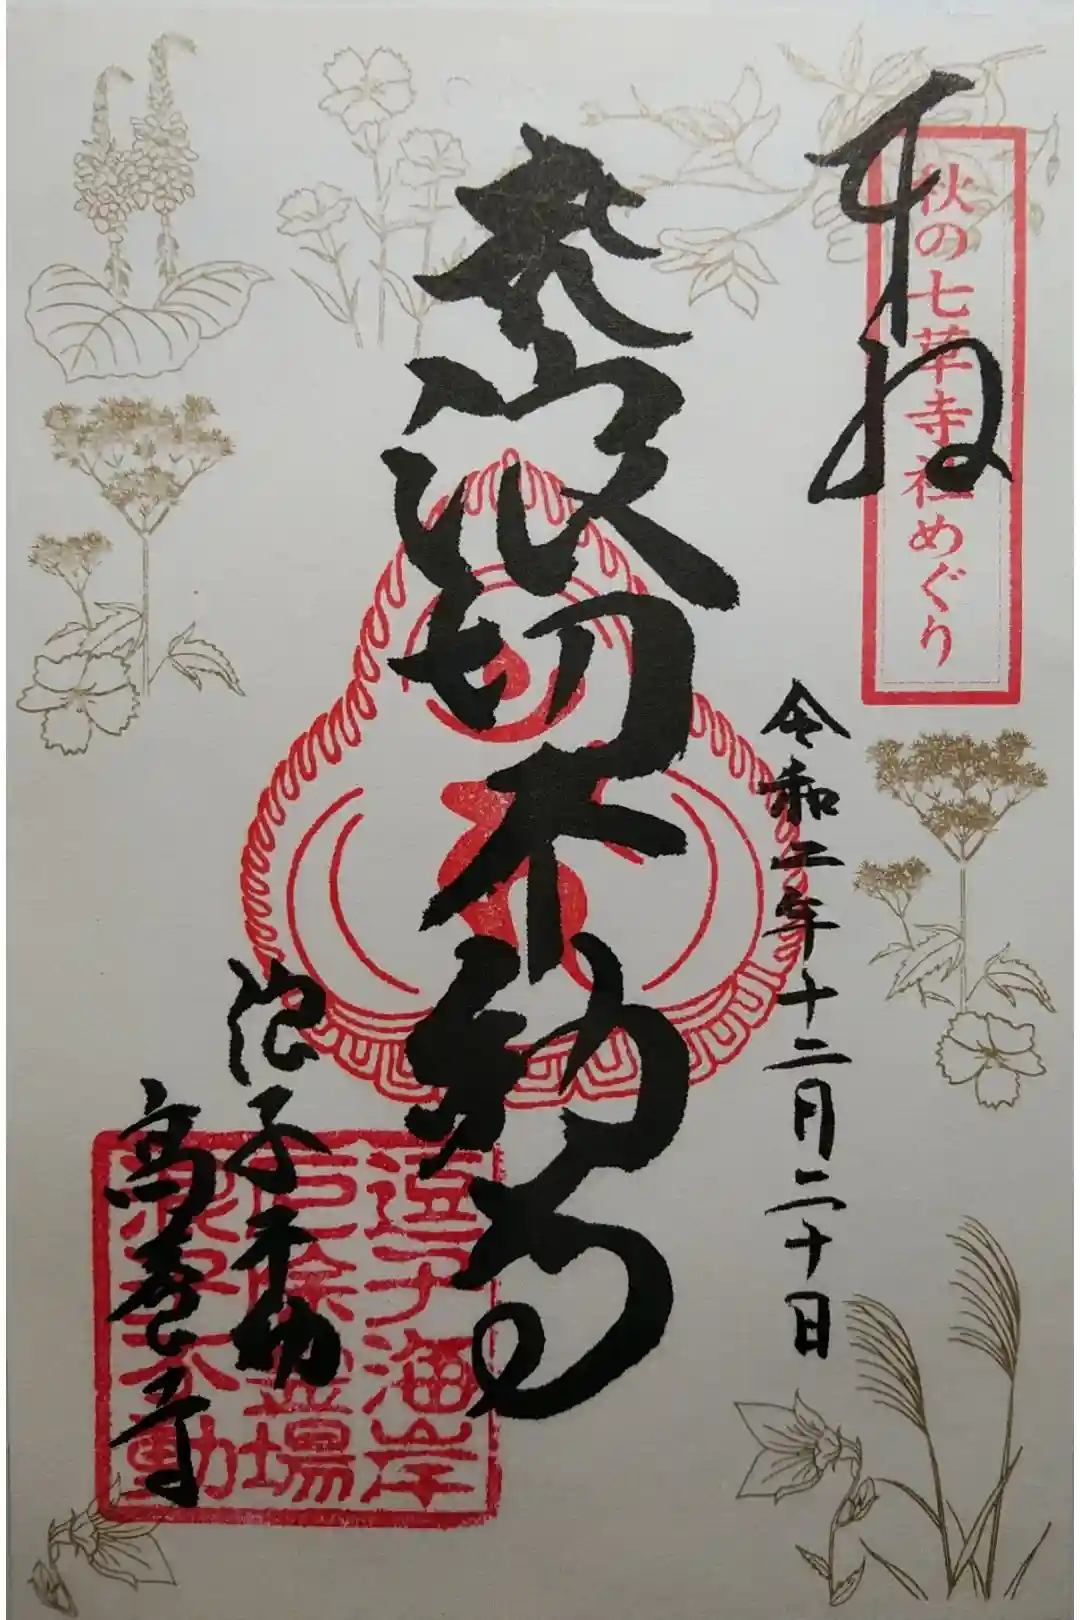 奉拝
秋の七草寺社めぐり
令和二年十二月二十日
浪切不動尊
浪子不動
高養寺
逗子海岸
厄除霊場
浪子不動